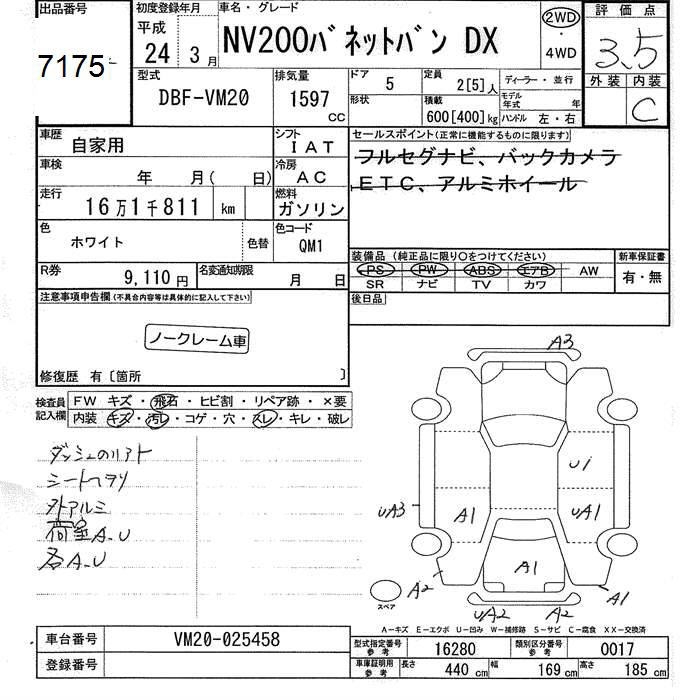 出品番号
7175
初度登録年月
平成
24 3月
車名・グレード
NV200バネットバン DX
2WD
・
4WD
評価点
3.5
外装 内装
C
型式
DBF-VM20
排気量
1597
CC
ドア 5
形状
定員 2[5]人
積載
600[400]kg
ディーラー・並行
モデル年式 年
ハンドル 左・右
車歴
自家用
シフト
IAT
車検
年 月( 日)
冷房
AC
走行
16万1千811 km
燃料
ガソリン
色
ホワイト
色替
色コード
QM1
R券
9,110円
名変通知期限
月 日
セールスポイント(正常に機能するものに限ります)
フルセグナビ、バックカメラ
ETC、アルミホイール
装備品 (純正品に限り○をつけてください)
PS PW ABS エアB AW
SR ナビ TV カワ
新車保証書
有・無
後日品
注意事項申告欄(不具合内容等は具体的に記入して下さい)
ノークレーム車
修復歴 有〔箇所 〕
検査員
記入欄
FW キズ・飛石・ヒビ割・リペア跡・×要
内装 キズ・汚レ・コゲ・穴・スレ・キレ・破レ
シートヘタリ
外アルミ
荷室A.U
各A.U
A3
U1
UA3
A1
UA1
A1
A2
A1
UA2
A2
スペア
A-キズ E-エクボ U-凹み W-補修跡 S-サビ C-腐食 XX-交換済
車台番号
VM20-025458
登録番号
型式指定番号
参考
16280
類別区分番号
参考
0017
車庫証明用
参考
長さ 440 cm
幅 169 cm
高さ 185 cm